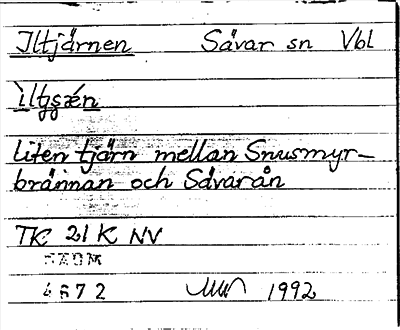 Iltjärnen Sävar sn Vbl
ìltjsæ̀n
liten tjärn mellan Snusmyr-
brännan och Sävarån
TK 21 K NV
4672 1992